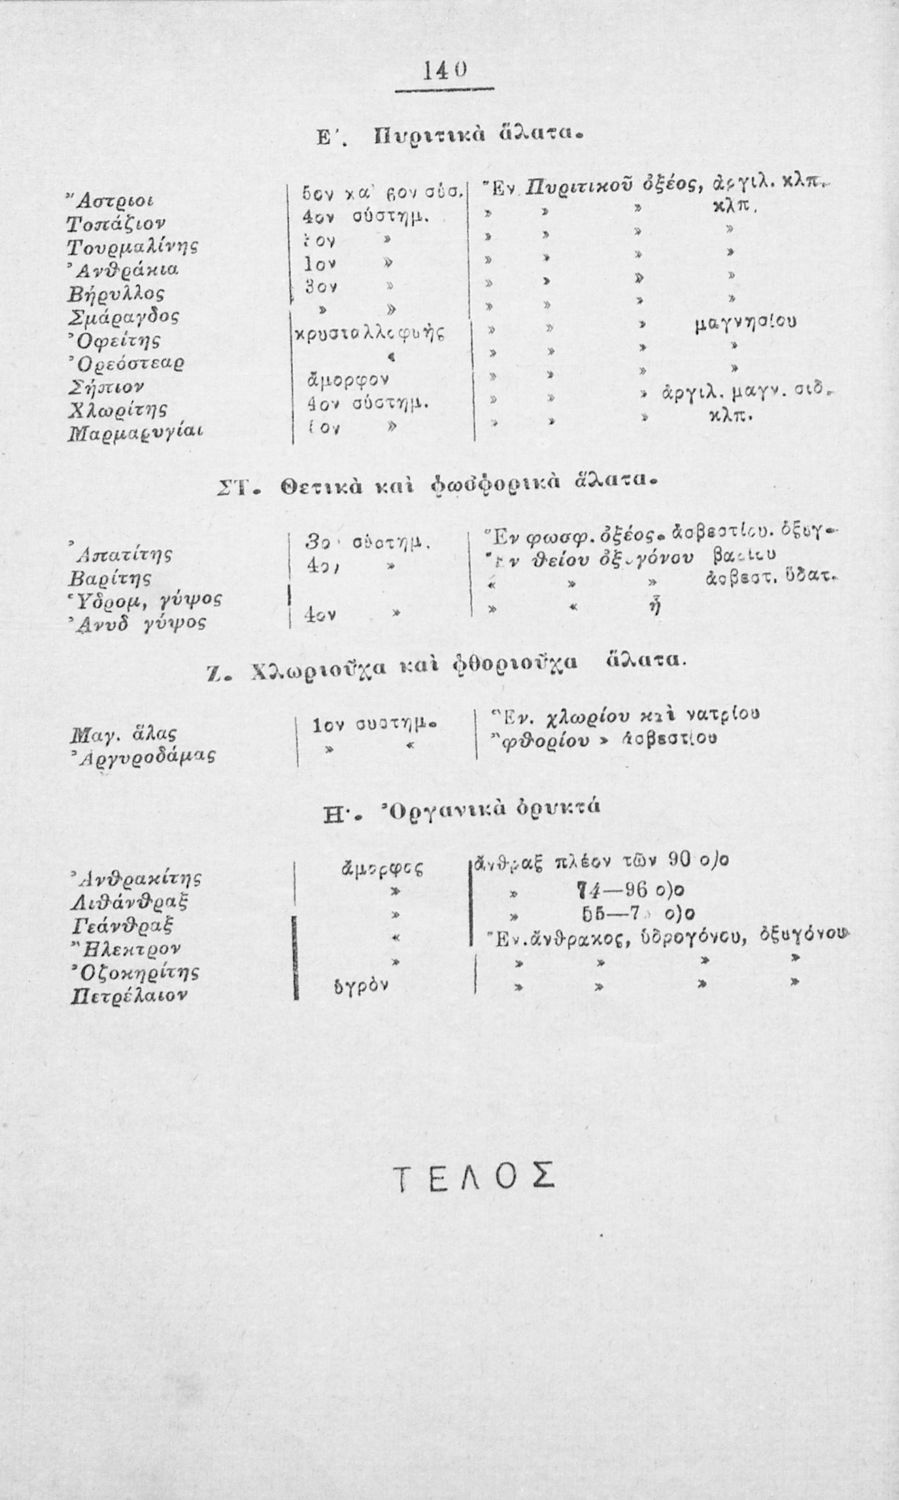 140
Ε΄. Πυριτικὰ ἅλατα.
Ἄστριοι 5ον κα σύσ. Ἕν Πυριτικοῦ ὀξέος, ἀργιλ. κλπ.
Τοπάζιον 4ον σύστημ. » » » κλπ.
Τουρμαλίνης ον » » » » »
Ἀνθράκια 1ον » » » » »
Βήρυλλος 3ον » » » » »
Σμάραγδος » » » » » »
Ὀφείτης κρυσταλλοφυὴς » » » μαγνησίου
Ὀρεόστεαρ « » » » »
Σήπιον ἄμορφον » » » »
Χλωρίτης 4ον σύστημ. » » » ἀργιλ. μαγν. σιδ.
Μαρμαρυγίαι ον » » » » κλπ.
ΣΤ. Θετικὰ καὶ φωσφορικὰ ἅλατα.
Ἀπατίτης 3ο σύστημ. Ἕν φωσφ. ὀξέος. ἀσβεστίου. ὀξυγ.
Βαρίτης 4ο » Ἕν θείου ὀξυγόνου βαρίου
Ὑδρομ, γύψος « » » ἀσβεστ. ὕδατ.
Ἀνυδ γύψος 4ον » » « ἢ
Ζ. Χλωριοῦχα καὶ φθοριοῦχα ἅλατα.
Μαγ. ἅλας 1ον συστημ. Ἕν. χλωρίου καὶ νατρίου
Ἀργυροδάμας » « "φθορίου » ἀσβεστίου
Η΄. Ὀργανικὰ ὀρυκτά
Ἀνθρακίτης ἄμορφος ἄνθραξ πλέον τῶν 90 ο)ο
Λιθάνθραξ » » 74—96 ο)ο
Γεάνθραξ » » 55—7 ο)ο
Ἤλεκτρον « Ἕν.ἄνθρακος, ὑδρογόνου, ὀξυγόνου
Ὀζοκηρίτης » » » » »
Πετρέλαιον ὑγρὸν » » » »
ΤΕΛΟΣ